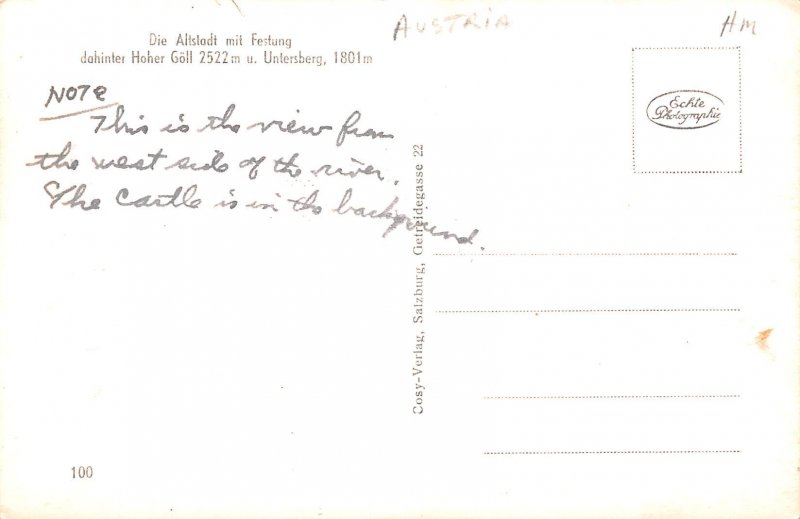 AUSTRIA
HM
Die Altstadt mit Festung
dahinter Hoher Göll 2522m u. Untersberg, 1801m
NOTE
This is the view from
the west side of the river.
The Castle is in the background.
Echte
Photographie
Cosy-Verlag, Salzburg, Getreidegasse 22
100